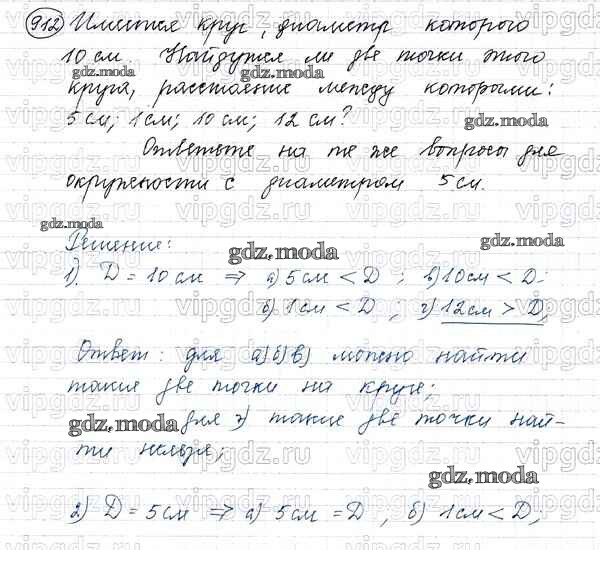 912 Имеется круг, диаметр которого
10 см. Найдутся ли две точки этого
gdz.moda
круга, расстояние между которыми:
5 см; 1 см; 10 см; 12 см?
gdz.moda
Ответьте на те же вопросы для
окружности с диаметром 5 см.
gdz.moda
Решение:
gdz.moda
gdz.moda
1). D = 10 см ⇒ а) 5 см < D ; в) 10 см < D;
б) 1 см < D ; г) 12 см > D;
Ответ: для а) б) в) можно найти
такие две точки на круге;
gdz.moda
для г) такие две точки най-
ти нельзя;
gdz.moda
2) D = 5 см ⇒ а) 5 см = D ; б) 1 см < D;